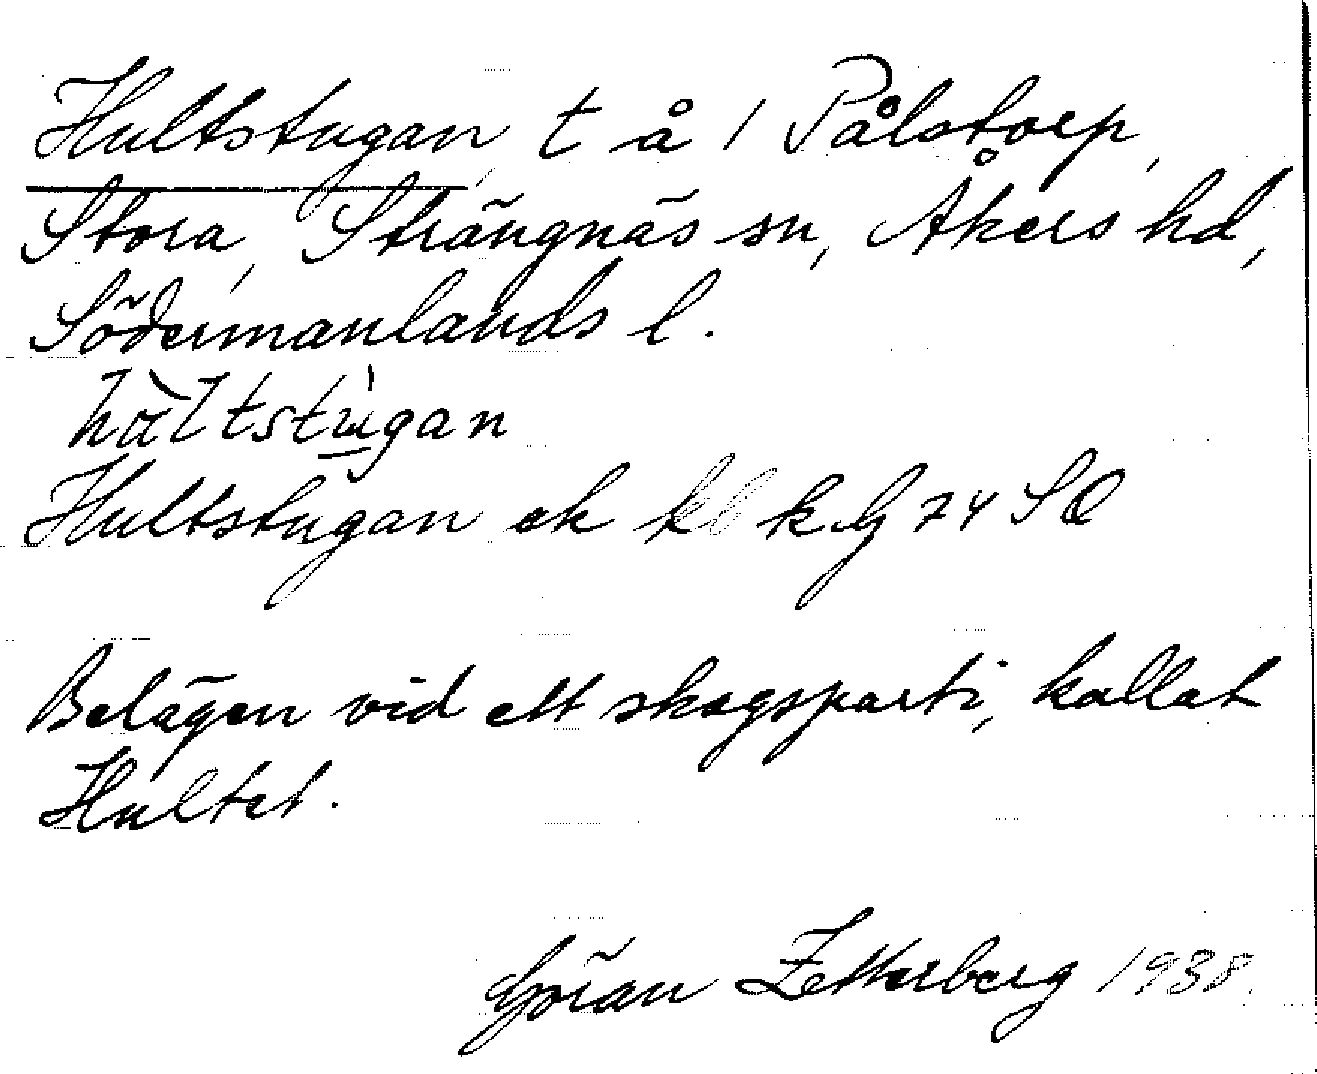 Hultstugan, t å 1 Pålstorp,
Stora, Strängnäs sn, Åkers hd,
Södermanlands l.
hultstugan
Hultstugan ek kb k.bl 74 SO
Belägen vid ett skogsparti, kallat
Hultet.
Göran Zetterberg 1938.